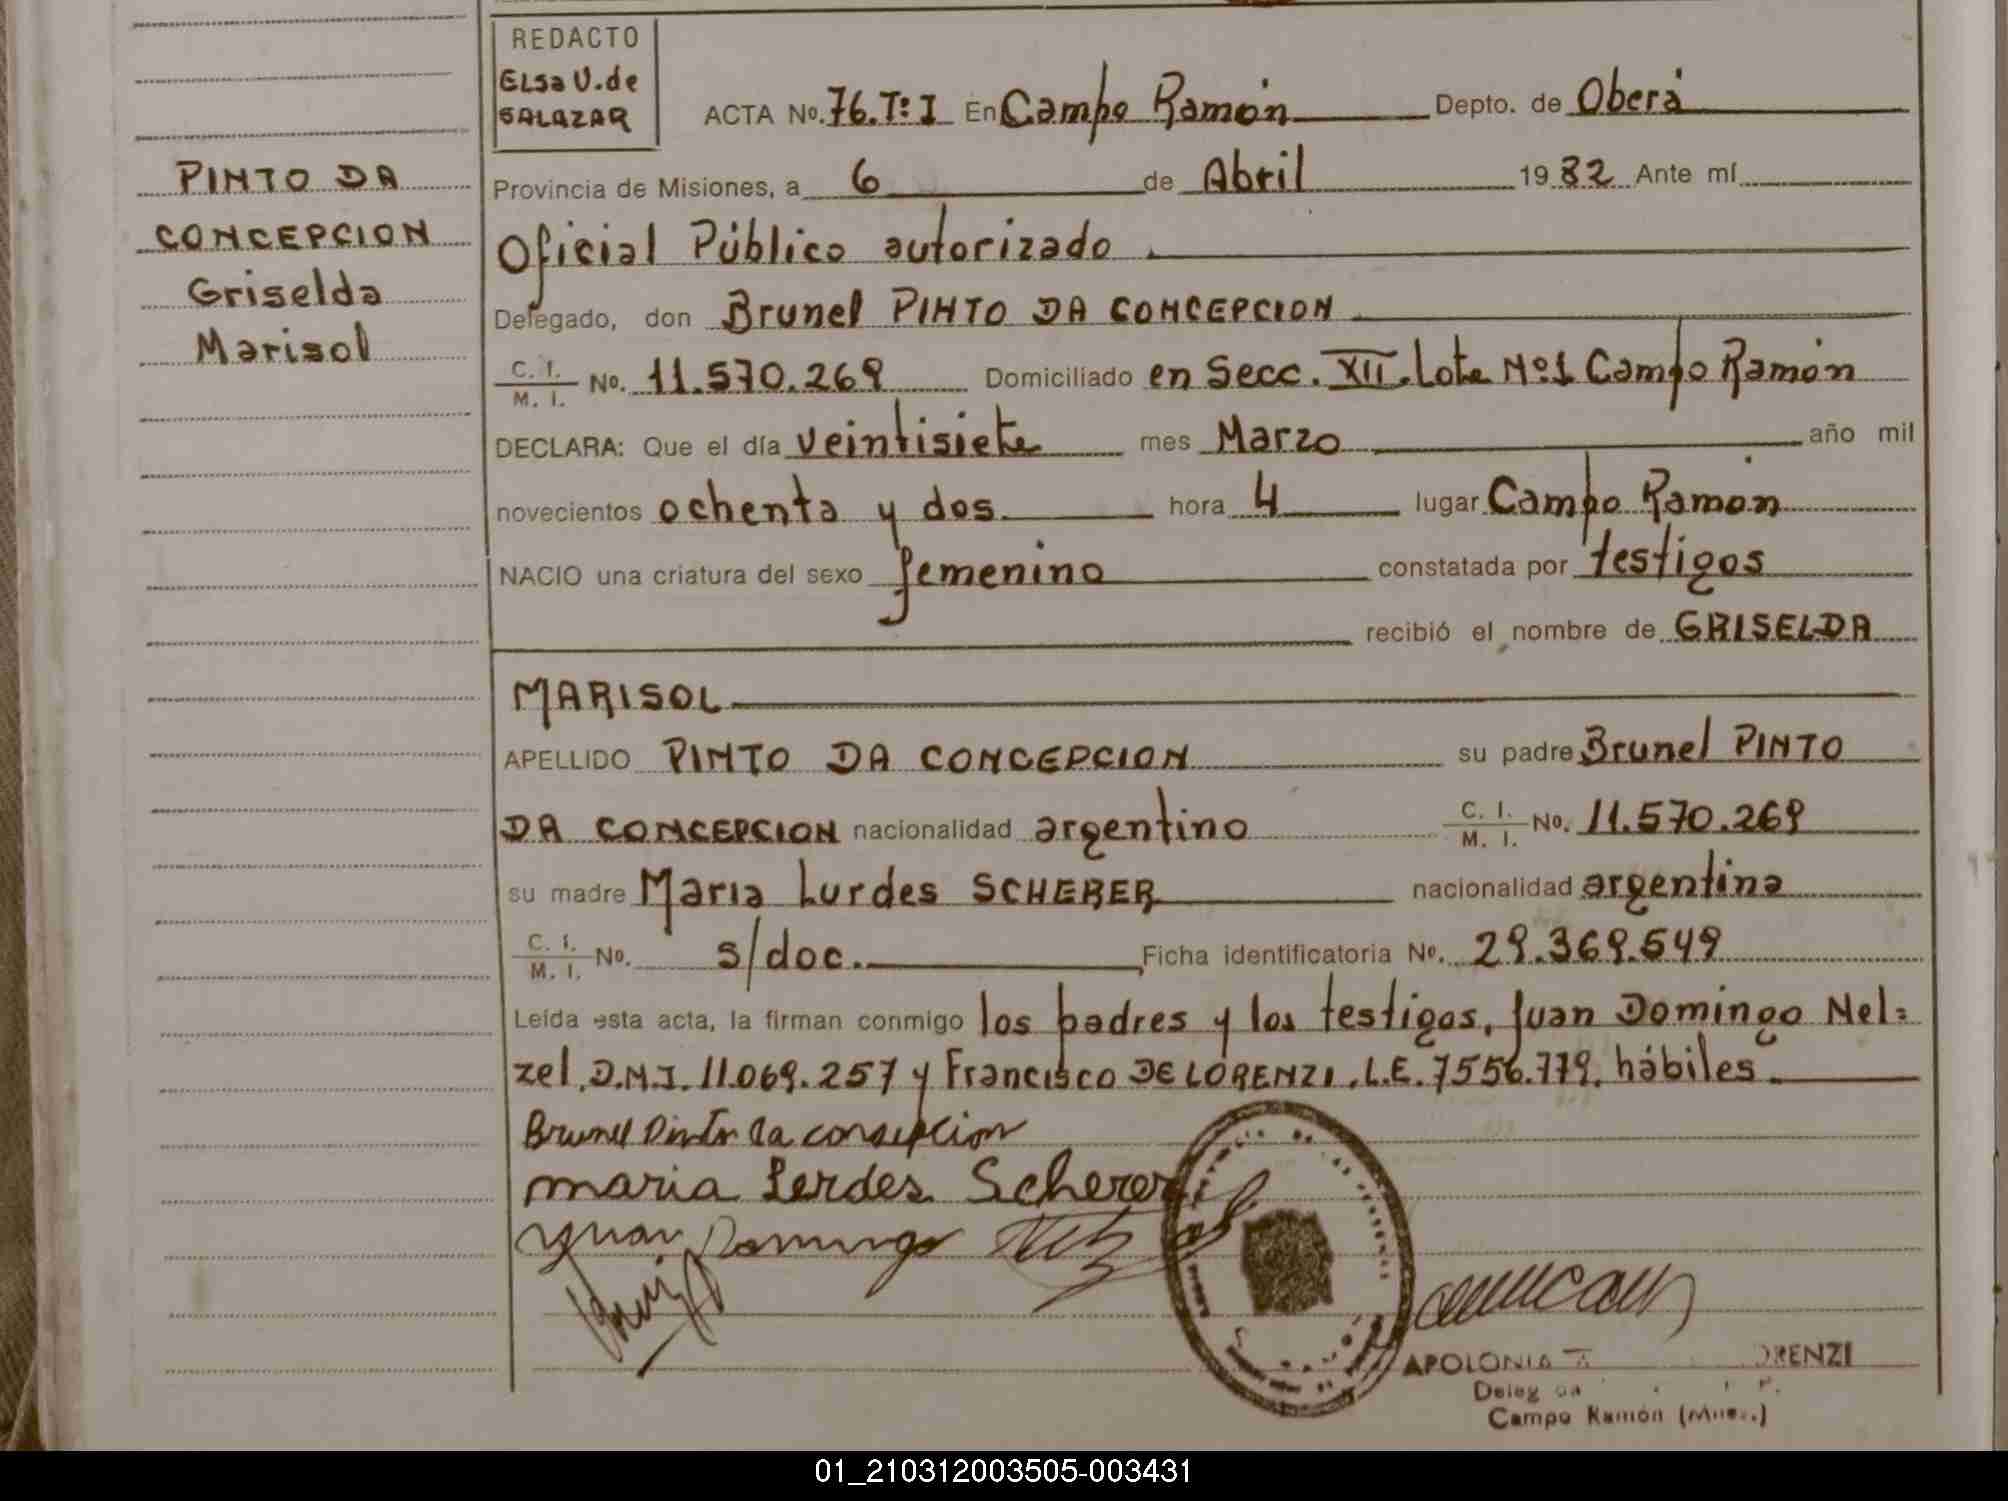 REDACTO
ELsa V. de
SALAZAR
ACTA Nº. 76. Tº I En Campo Ramón Depto. de Oberá
PINTO DA
CONCEPCION
Griselda
Marisol
Provincia de Misiones, a 6 de Abril 1982 Ante mí
Oficial Público autorizado.
Delegado, don Brunel PINTO DA CONCEPCION
C. I. / M. I. No. 11.570.269 Domiciliado en Secc. XII. Lote Nº 1 Campo Ramón
DECLARA: Que el día veintisiete mes Marzo año mil
novecientos ochenta y dos hora 4 lugar Campo Ramón
NACIO una criatura del sexo femenino constatada por testigos
recibió el nombre de GRISELDA
MARISOL
APELLIDO PINTO DA CONCEPCION su padre Brunel PINTO
DA CONCEPCION nacionalidad argentino C. I. / M. I. No. 11.570.269
su madre Maria Lurdes SCHERER nacionalidad argentina
C. I. / M. I. No. s/doc. Ficha identificatoria No. 29.369.549
Leída esta acta, la firman conmigo los padres y los testigos, Juan Domingo Nel=
zel, D.N.I. 11.069.257 y Francisco DE LORENZI, L.E. 7556.779. hábiles.
Brunel Pinto da consepcion
maria Lerdes Scherer
Juan Domingo
APOLONIA RENZI
Campo Ramón
01_210312003505-003431